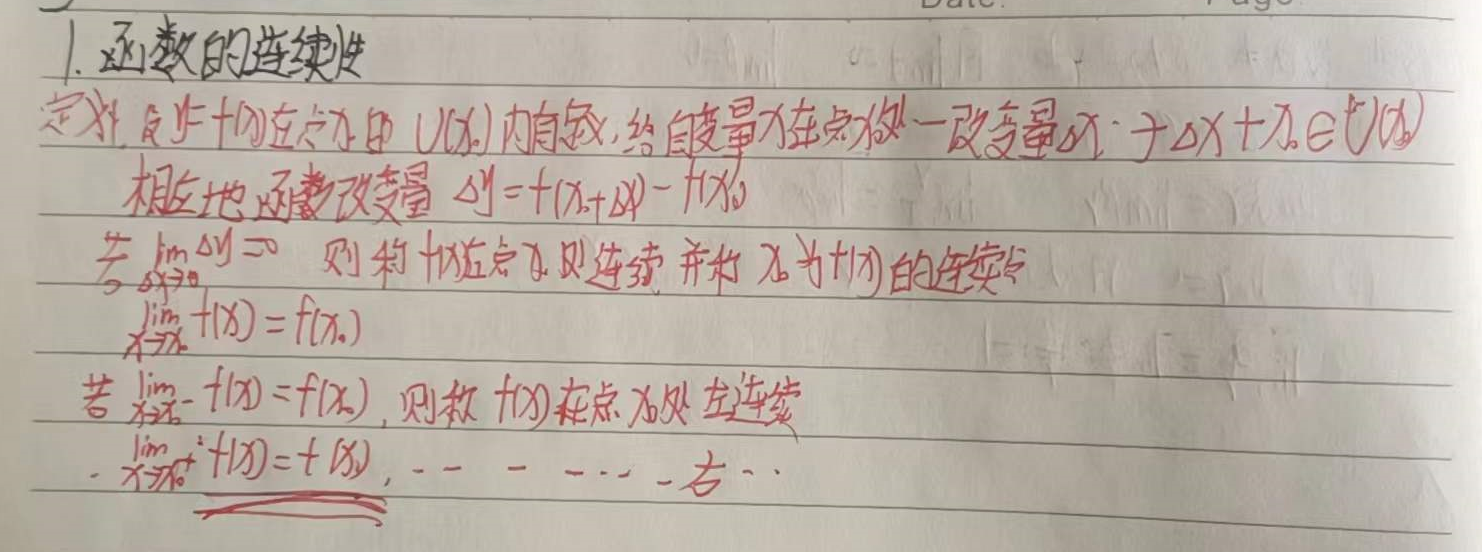 Date. Page
1. 函数的连续性
定义 设y=f(x)在点x₀的 U(x₀)内有定义,给自变量x在点x₀处一改变量Δx Δx+x₀∈U(x₀)
相应地函数改变量 Δy=f(x₀+Δx)-f(x₀)
若 lim Δx→0 Δy=0 则称f(x)在点x₀则连续 并称 x₀为f(x)的连续点
lim x→x₀ f(x)=f(x₀)
若 lim x→x₀⁻ f(x)=f(x₀),则称 f(x)在点x₀处 左连续
lim x→x₀⁺ f(x)=f(x₀),-- - -... -右..